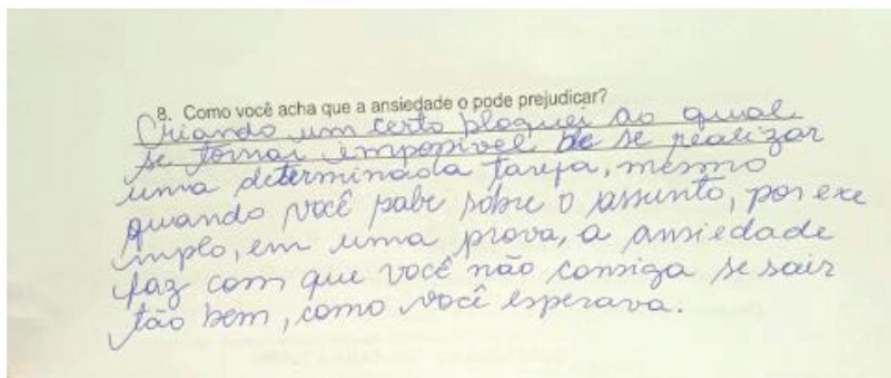 8. Como você acha que a ansiedade o pode prejudicar?
Criando um certo bloquei ao qual
se tornar impossivel de se realizar
uma determinada tarefa, mesmo
quando você sabe sobre o assunto, por exe
implo, em uma prova, a ansiedade
faz com que você não consiga se sair
tão bem, como você esperava.